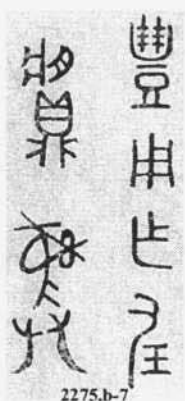 豐用乍
𩰬彝
2275.b-7